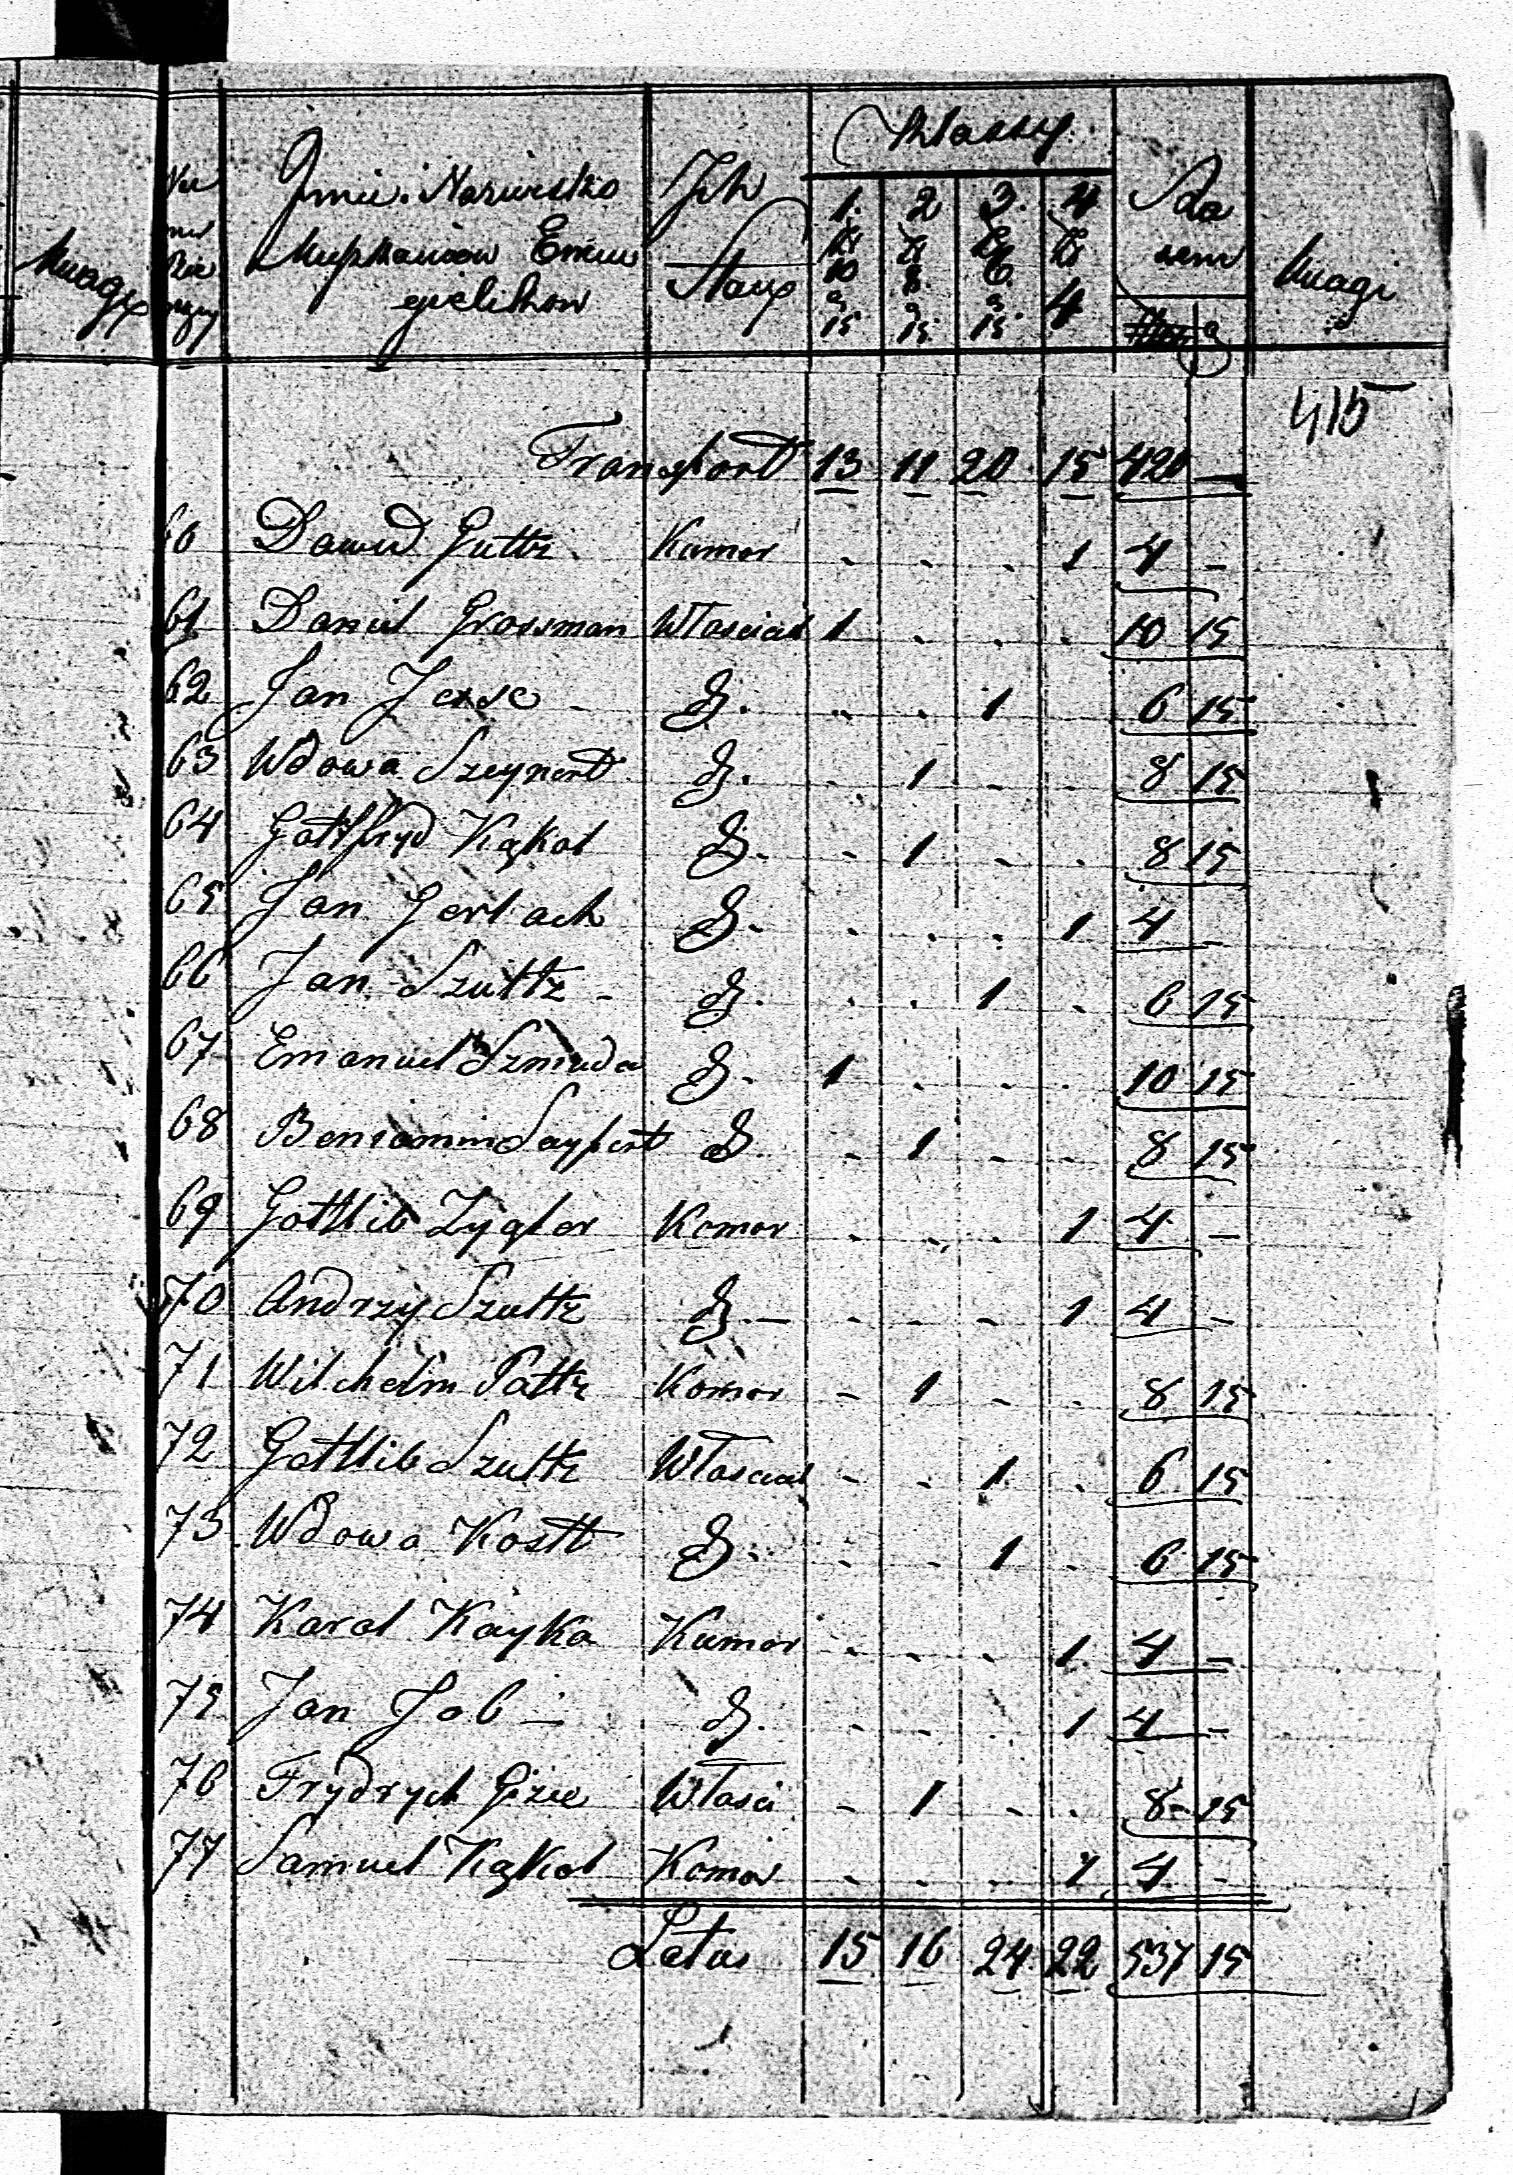 Uwagi
Nu mer Bie rzący
Imie i Nazwisko
Mieszkańców Ewan
gielikow
Ich
Stan
Klassy
1. zł 10 g 15
2 zł 8. g 15
3. zł 6. g 15
4 zł 4
Ra
zem
g
Uwagi
415
Transport 13 11 20 15 420 —
60 Dawid Guttz Komor . . . 1 4 -
61 Daniel Grosman Włościań 1 . . . 10 15
62 Jan Jesse - D. . . 1 6 15
63 Wdowa Szeynert D. . 1 - - 8 15
64 Gottfryd Kąkol D. - 1 - . 8 15
65 Jan Gerlach D. . . . 1 4 -
66 Jan Szultz - D. . . 1 . 6 15
67 Emanuel Szmuda D. 1 . . . 10 15
68 Beniamin Sayfert D. . 1 - - 8 15
69 Gottlib Zygler Komor . . . 1 4 -
70 Andrzy Szultz D. — . - - 1 4 -
71 Wilchelm Pattz Komor - 1 - . 8 15
72 Gottlib Szultz Włościań - - 1 . 6 15
73 Wdowa Kostt D. . - 1 . 6 15
74 Karol Kayka Komor . . . 1 4 -
75 Jan Job - D. . . . 1 4 -
76 Frydrych Gizie Włości - 1 - . 8 - 15
77 Samuel Kąkol Komor . . . 1 4 -
Latus 15 16 24 22 537 15